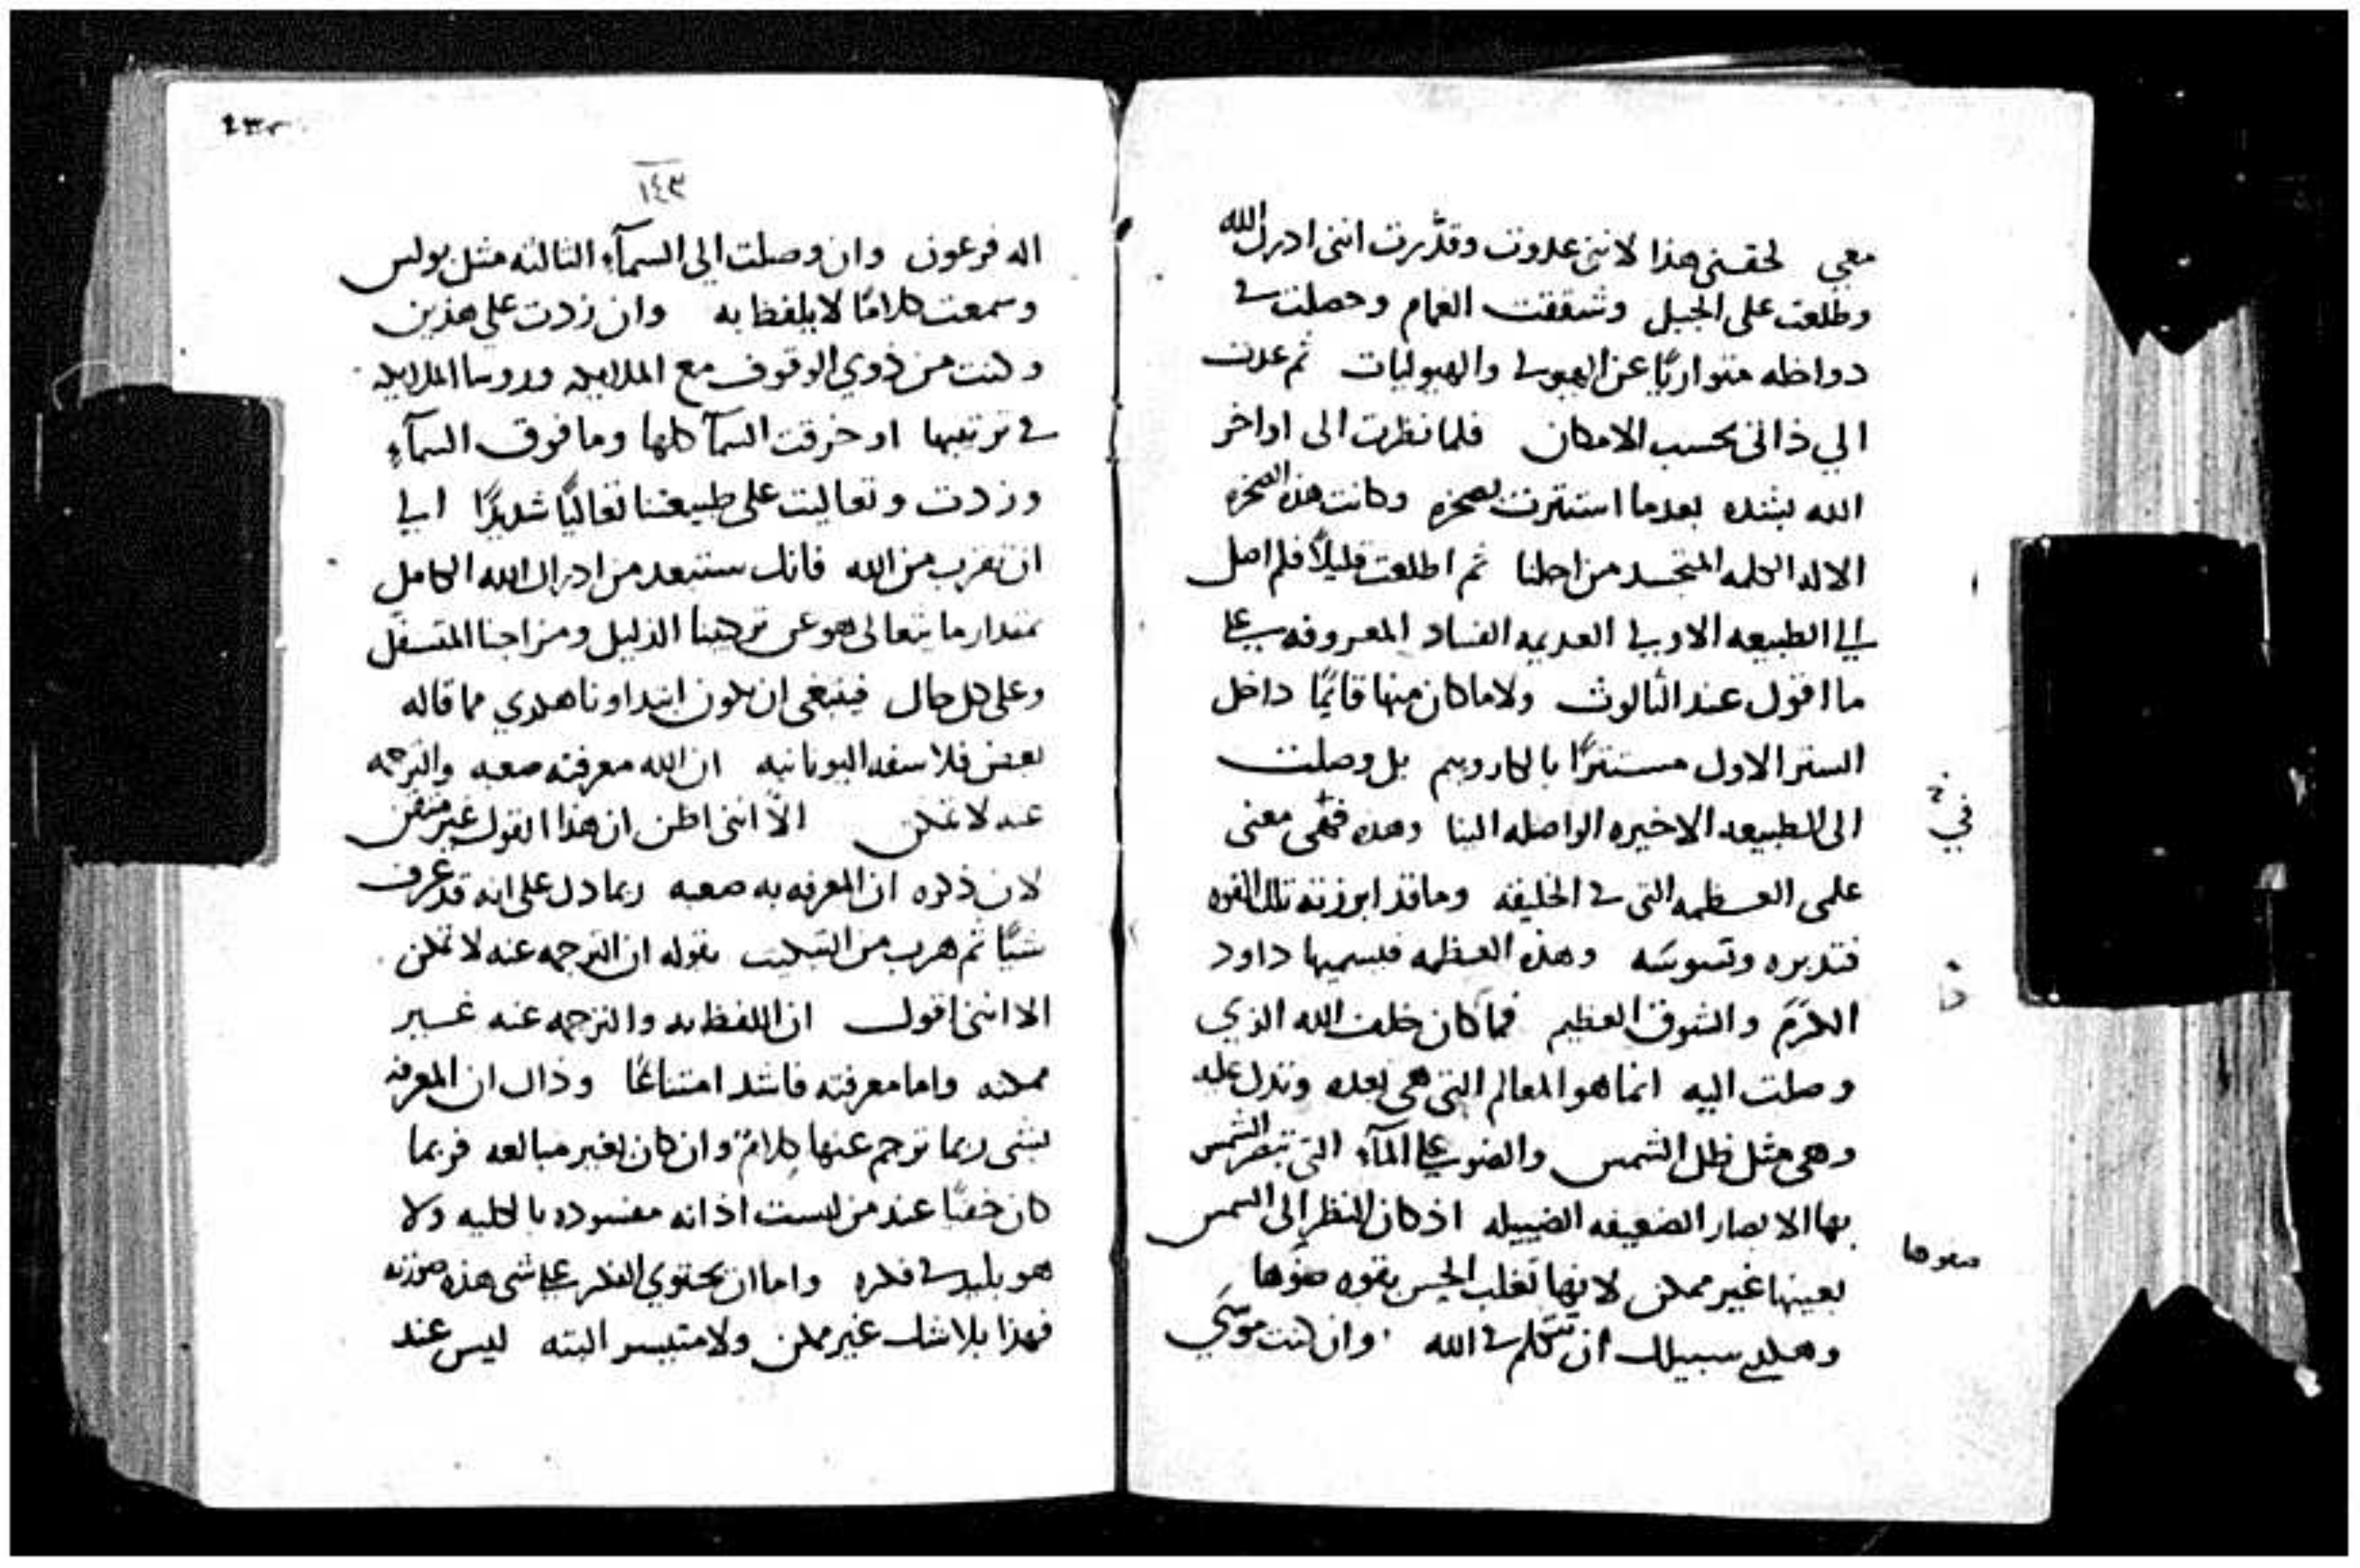 معي لحقني هذا لانني عدوت وقدَّرت انني ادرك الله
وطلعت على الجبل وشققت الغمام وحصلت في
دواخله متواريًا عن الهيولي والهيوليات ثم عدت
الي ذاتي بحسب الامكان فلما نظرت الى اواخر
الله بشده بعدما استترت بصخره وكانت هذه الصخره
الاله الكلمه المتجسد من اجلنا ثم اطلعت قليلاً فلم اصل
الي الطبيعه الاولي العديمه الفساد المعروفه علي
ما اقول عند الثالوث ولا ما كان منها قايمًا داخل
الستر الاول مستترًا بالكاروبيم بل وصلت
الى الطبيعه الاخيره الواصله الينا وهذه فهي معنى
في
علمي العظمه التي في الخليقه وما قد ابرزته تلك القوه
فتدبره وتسوسَه وهذه العظمه فيسميها داود
الكرَم والشوق العظيم فما كان خلف الله الذي
وصلت اليه انما هو المعالم التي هي بعده وتدل عليه
وهي مثل ظل الشمس والضو علي المآء التي تبصر الشمس
بها الابصار الضعيفه الضييله اذ كان النظر إلى الشمس
بعينها غير ممكن لانها تغلب الحس بقوه ضوها
ضوها
وهكذي سبيلك ان تتكلم في الله وان كنت موسَي
١٤٣
اله فرعون وان وصلت الي السمآء الثالثه مثل بولس
وسمعت كلامًا لا يلفظ به وان زدت علي هذين
وكنت من ذوي الوقوف مع الملايكه وروسا الملايكه
في ترتيبها او خرقت السمآ كلها وما فوق السمآء
وزدت وتعاليت على طبيعتنا تعاليًا شديدًا الي
ان تقرب من الله فانك ستبعد من ادراك الله الكامل
بمقدار ما يتعالى هو عن تركيبنا الذليل ومزاجنا المتسفّل
وعلى كل حال فينبغي ان يكون ابتداونا هكذي مما قاله
بعض فلاسفه اليونانيه ان الله معرفته صعبه والترجمه
عنه لا تمكن الاّ انني اظن ان هذا القول غير متقن
لان ذكره ان المعرفه به صعبه ربما دل على انه قد عرف
شيًا ثم هرب من التبكيت بقوله ان الترجمه عنه لا تمكن
الا انني اقول ان اللفظ به والترجمه عنه غير
ممكنه واما معرفته فاشد امتناعًا وذاك ان المعرفه
بشي ربما ترجم عنها كلامٌ وان كان بغير مبالغه فربما
كان خفيًا عند من ليست اذانه مفسوده بالكليه ولا
هو بليد في فكره واما ان يحتوي الفكر علي شي هذه صورته
فهذا بلا شك غير ممكن ولا متيسر البته ليس عند